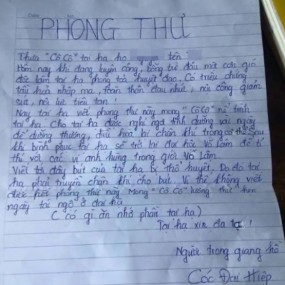 PHONG THƯ
Thưa "Cô Cô" tại hạ họ tên
Hôm nay khi đang luyện công, bỗng từ đâu một cơn gió
độc làm tại hạ phong toả huyệt đạo. Có triệu chứng
tẩu hoả nhập ma, toàn thân đau nhức, nội công giảm
sút, nội lực tiêu tan!
Nay tại hạ viết phong thư này mong "Cô Cô" nể tình
tại hạ. Cho tại hạ được nghỉ ngơi tĩnh dưỡng vài ngày
để dưỡng thương, điều hoà bí chân khí trong cơ thể sau
khi bình phục tại hạ sẽ trở lại đại hội Võ Lâm để tỉ
thí với các vị anh hùng trong giới Võ Lâm
Viết tới đây bút của tại hạ bị thổ huyết, Do đó tại
hạ phải truyền chân khí cho bút. Vì thế không viết
tiếp hết phong thư này Mong "Cô Cô" lượng thứ hẹn
ngày tái ngộ ở đại hội
( có gì ăn nhớ phần tại hạ )
Tại hạ xin đa tạ !
Người trong giang hồ
Cóc Đại Hiệp